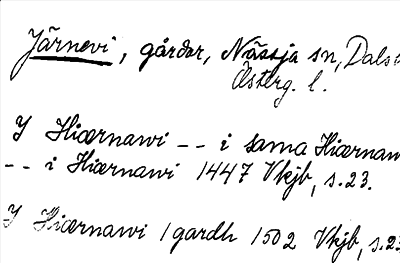 Järnevi, gårdar, Nässja sn, Dals
Österg. l.
I Hiærnawi -- i sama Hiærnaw
-- i Hiærnawi 1447 Vkjb, s. 23.
I Hiærnawi 1 gardh 1502 Vkjb, s. 23